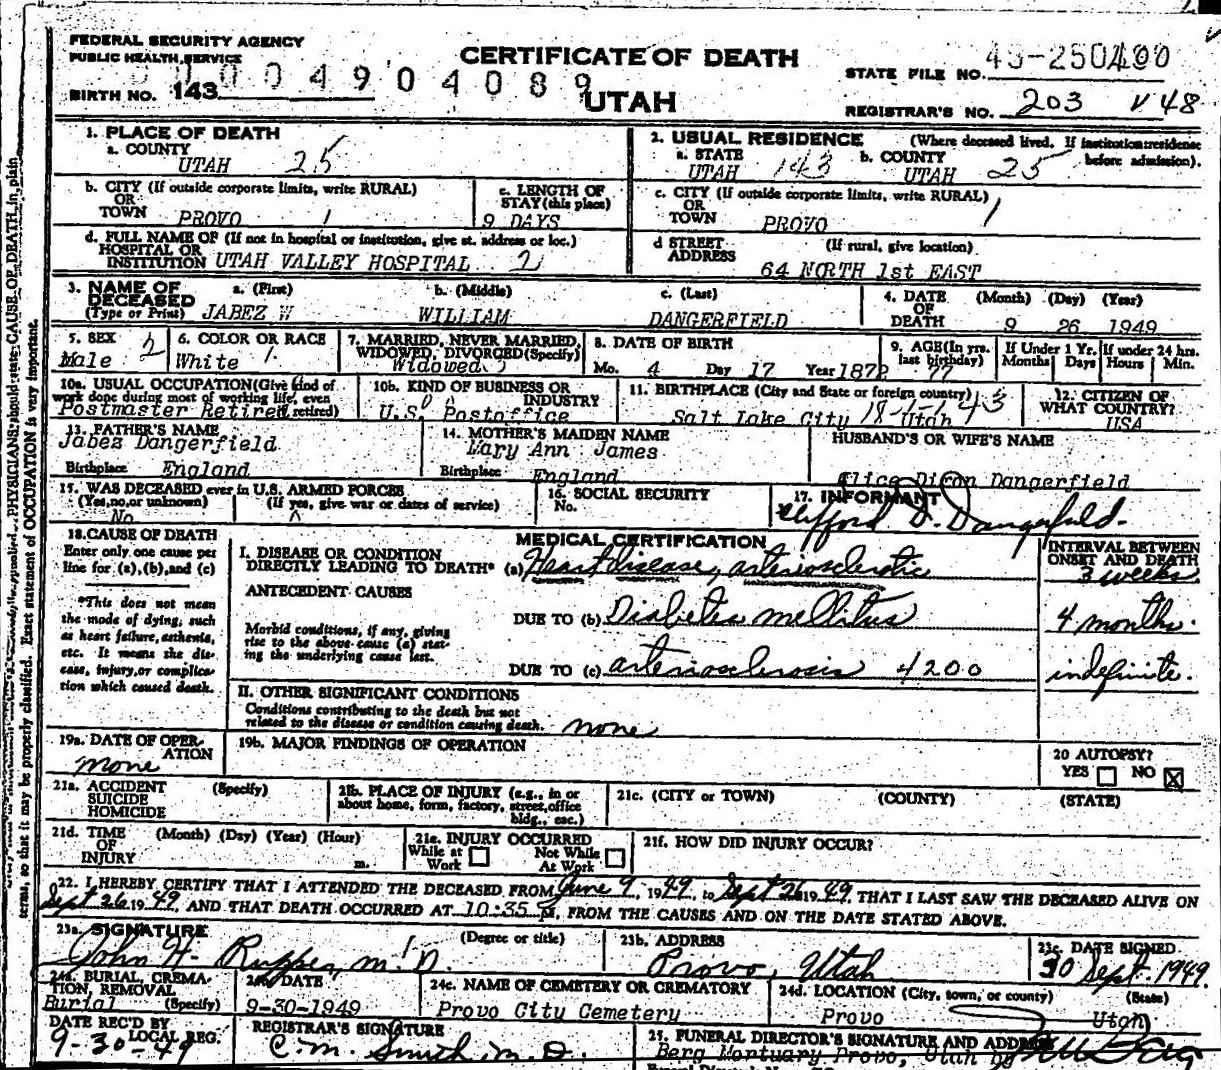 FEDERAL SECURITY AGENCY
PUBLIC HEALTH SERVICE
CERTIFICATE OF DEATH
UTAH
0004904089
BIRTH NO. 143
STATE FILE NO.
REGISTRAR'S NO. 203 V 48
1. PLACE OF DEATH
a. COUNTY
UTAH 25
2. USUAL RESIDENCE (Where deceased lived. If institution: residence before admission).
a. STATE
UTAH 143
b. COUNTY
UTAH 25
b. CITY (If outside corporate limits, write RURAL)
OR
TOWN PROVO 1
c. LENGTH OF
STAY (this place)
9 DAYS
c. CITY (If outside corporate limits, write RURAL)
OR
TOWN PROVO 1
d. FULL NAME OF (If not in hospital or institution, give st. address or loc.)
HOSPITAL OR
INSTITUTION UTAH VALLEY HOSPITAL 2
d STREET (If rural, give location)
ADDRESS
64 NORTH 1st EAST
3. NAME OF
DECEASED
(Type or Print)
a. (First)
JABEZ W
b. (Middle)
WILLIAM
c. (Last)
DANGERFIELD
4. DATE (Month) (Day) (Year)
OF
DEATH 9 26 1949
5. SEX
Male 2
6. COLOR OR RACE
White 1
7. MARRIED, NEVER MARRIED,
WIDOWED, DIVORCED (Specify)
Widowed
8. DATE OF BIRTH
Mo. 4 Day 17 Year 1872
9. AGE (In yrs.
last birthday)
77
If Under 1 Yr.
Months Days
If under 24 hrs.
Hours Min.
10a. USUAL OCCUPATION (Give kind of
work done during most of working life, even
if retired)
Postmaster Retired
10b. KIND OF BUSINESS OR
INDUSTRY
U.S. Postoffice
11. BIRTHPLACE (City and State or foreign country)
Salt Lake City Utah
12. CITIZEN OF
WHAT COUNTRY?
USA
13. FATHER'S NAME
Jabez Dangerfield
Birthplace England
14. MOTHER'S MAIDEN NAME
Mary Ann James
Birthplace England
HUSBAND'S OR WIFE'S NAME
Alice Dixon Dangerfield
15. WAS DECEASED ever in U.S. ARMED FORCES
(Yes, no, or unknown) (If yes, give war or dates of service)
No
16. SOCIAL SECURITY
No.
17. INFORMANT
Clifford D. Dangerfield.
18. CAUSE OF DEATH
Enter only one cause per
line for (a), (b), and (c)
*This does not mean
the mode of dying, such
as heart failure, asthenia,
etc. It means the dis-
ease, injury, or complica-
tion which caused death.
MEDICAL CERTIFICATION
I. DISEASE OR CONDITION
DIRECTLY LEADING TO DEATH* (a) Heart disease, arteriosclerotic
ANTECEDENT CAUSES
DUE TO (b) Diabetes mellitus
Morbid conditions, if any, giving
rise to the above cause (a) stat-
ing the underlying cause last.
DUE TO (c) arteriosclerosis 4200
INTERVAL BETWEEN
ONSET AND DEATH
3 weeks
4 months.
indefinite.
II. OTHER SIGNIFICANT CONDITIONS
Conditions contributing to the death but not
related to the disease or condition causing death. none
19a. DATE OF OPER-
ATION
none
19b. MAJOR FINDINGS OF OPERATION
20 AUTOPSY?
YES NO X
21a. ACCIDENT (Specify)
SUICIDE
HOMICIDE
21b. PLACE OF INJURY (e.g., in or
about home, form, factory, street, office
bldg., esc.)
21c. (CITY or TOWN) (COUNTY) (STATE)
21d. TIME (Month) (Day) (Year) (Hour)
OF
INJURY m.
21e. INJURY OCCURRED
While at Work Not While At Work
21f. HOW DID INJURY OCCUR?
22. I HEREBY CERTIFY THAT I ATTENDED THE DECEASED FROM June 9, 1949, to Sept 26 1949, THAT I LAST SAW THE DECEASED ALIVE ON
Sept 26 1949, AND THAT DEATH OCCURRED AT 10:35 P M, FROM THE CAUSES AND ON THE DATE STATED ABOVE.
23a. SIGNATURE (Degree or title)
John H. Rupper, M.D.
23b. ADDRESS
Provo, Utah
23c. DATE SIGNED
30 Sept. 1949.
24a. BURIAL, CREMA-
TION, REMOVAL
Burial (Specify)
DATE
9-30-1949
24c. NAME OF CEMETERY OR CREMATORY
Provo City Cemetery
24d. LOCATION (City, town, or county) (State)
Provo Utah
DATE REC'D BY
LOCAL REG.
9-30-49
REGISTRAR'S SIGNATURE
C. M. Smith, M.D.
25. FUNERAL DIRECTOR'S SIGNATURE AND ADDRESS
Berg Mortuary Provo, Utah by
PHYSICIANS should state CAUSE OF DEATH in plain
terms, so that it may be properly classified. Exact statement of OCCUPATION is very important.